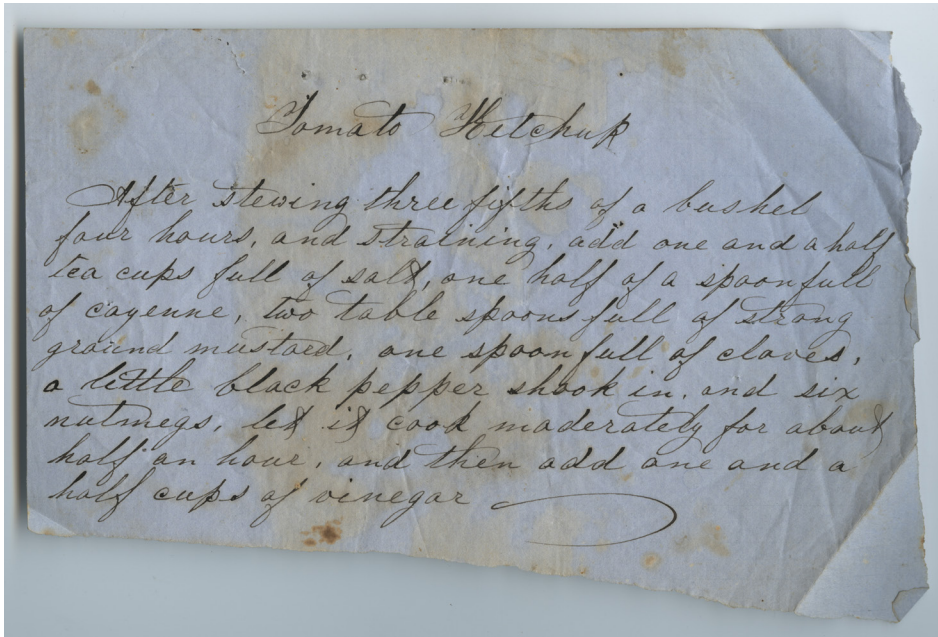 Tomato Ketchup
After stewing three fifths of a bushel
four hours, and straining, add one and a half
tea cups full of salt, one half of a spoonfull
of cayenne, two table spoons full of strong
ground mustard, one spoon full of cloves,
a little black pepper shook in, and six
nutmegs, let it cook moderately for about
half an hour, and then add one and a
half cups of vinegar